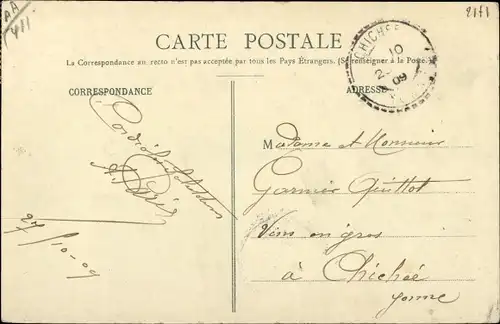 AA
411
2171
CARTE POSTALE
La Correspondance au recto n'est pas acceptée par tous les Pays Étrangers. (Se renseigner à la Poste.)
CORRESPONDANCE
ADRESSE
CHICHÉE
10
2
09
Cordiales
27/10-09
Madame et Monsieur
Garnier Quittot
Vins en gros
à Chichée
Yonne